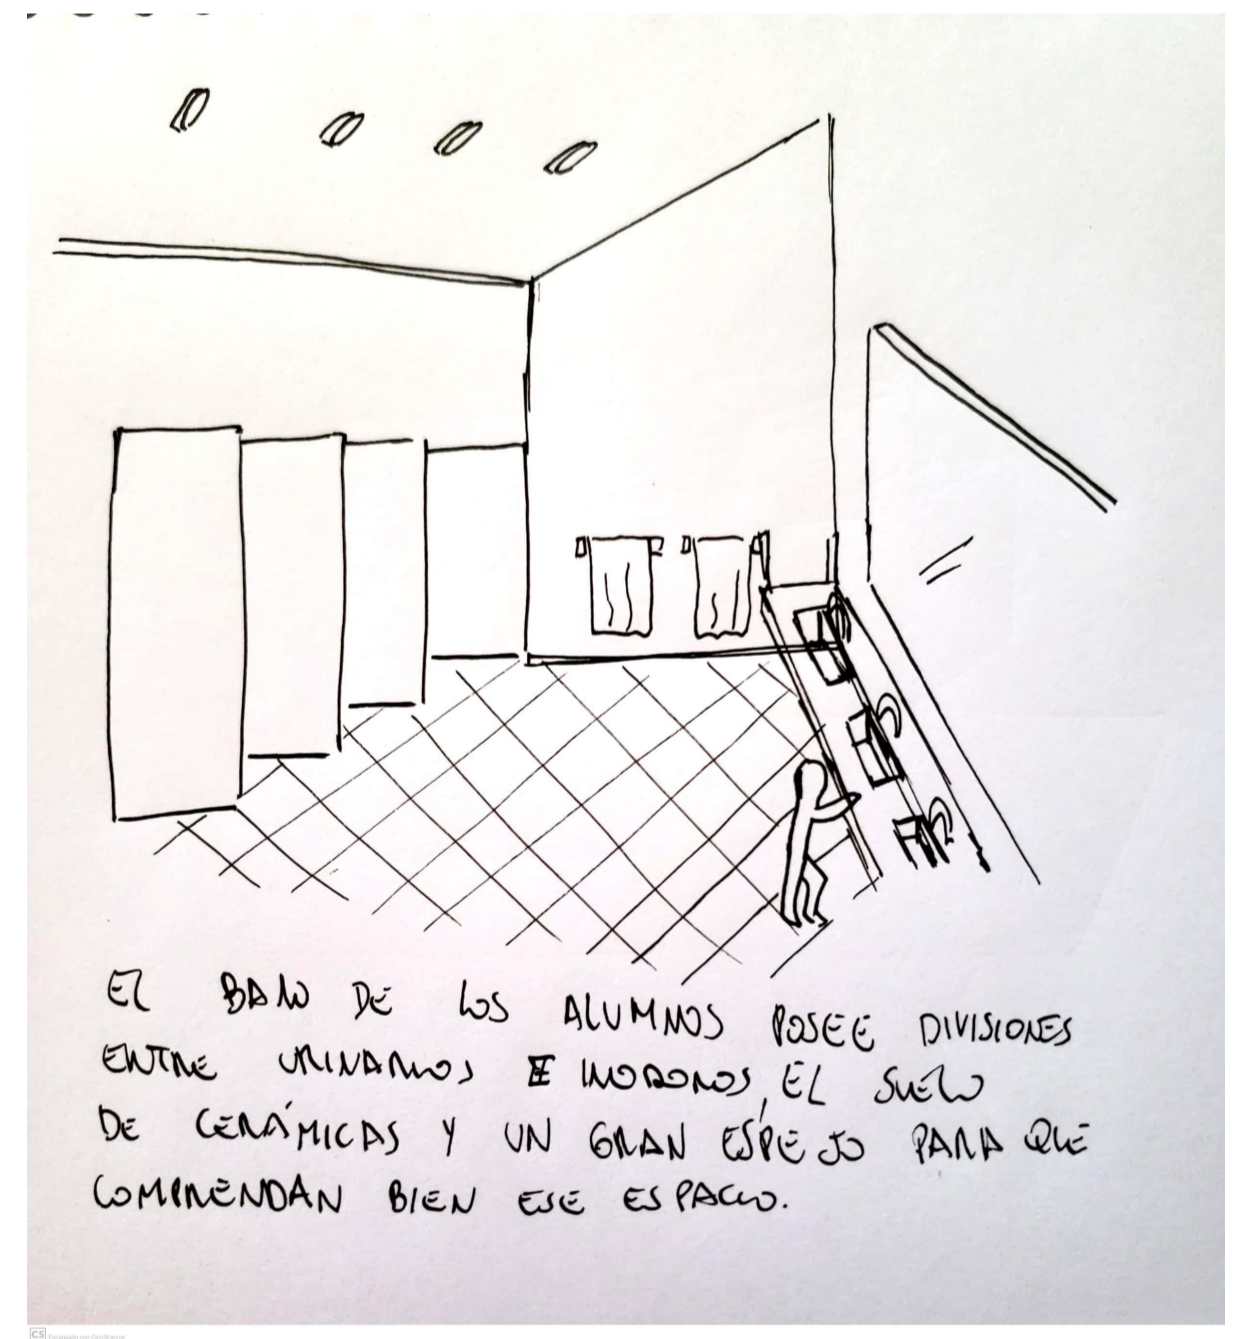 EL BAÑO DE LOS ALUMNOS POSEE DIVISIONES
ENTRE URINARIOS E INODOROS, EL SUELO
DE CERÁMICAS Y UN GRAN ESPEJO PARA QUE
COMPRENDAN BIEN ESE ESPACIO.
CS Escaneado con CamScanner